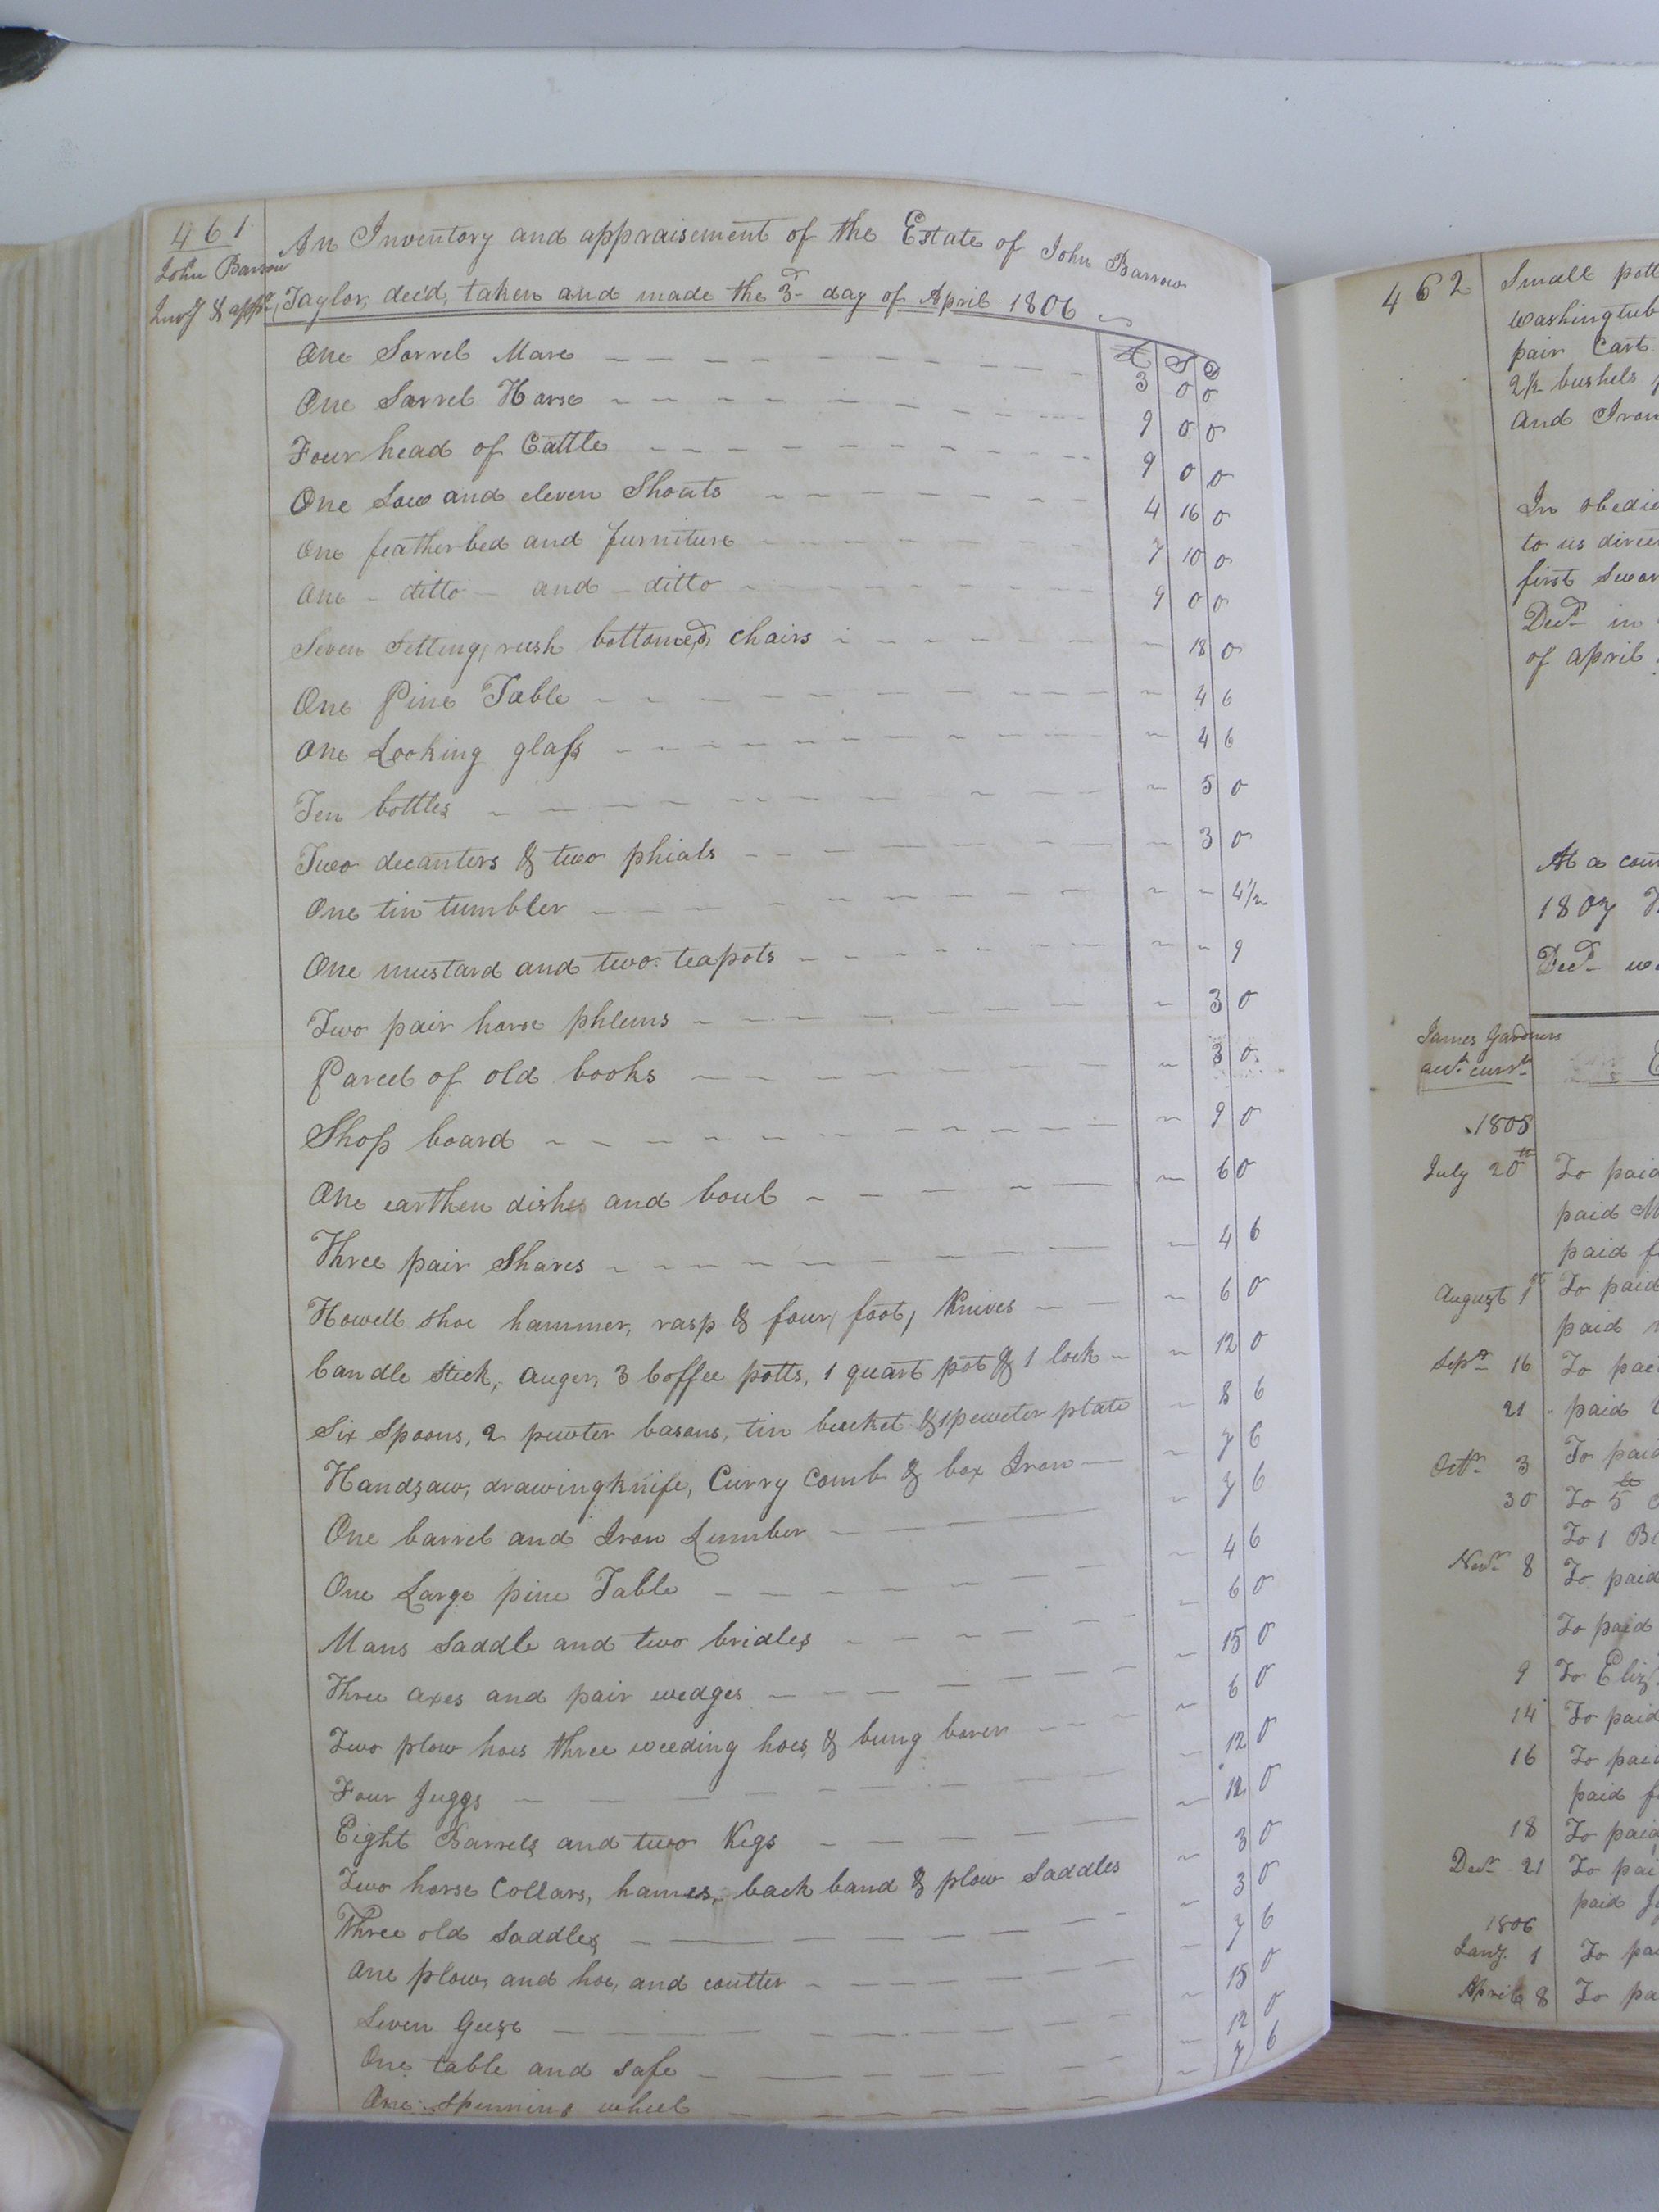 461
John Barrow
Invy & appt
An Inventory and appraisement of the Estate of John Barrow
Taylor, dec'd, taken and made the 3d day of April 1806
£ S D
One Sorrel Mare 3 0 0
One Sorrel Horse 9 0 0
Four head of Cattle 9 0 0
One Sow and eleven Shoats 4 16 0
One featherbed and furniture 7 10 0
One - ditto - and - ditto 9 0 0
Seven Setting, rush bottomed, chairs 18 0
One Pine Table 4 6
One Looking glass 4 6
Ten bottles 5 0
Two decanters & two phials 3 0
One tin tumbler 4½
One mustard and two teapots 9
Two pair horse phlems 3 0
Parcel of old books 3 0
Shop board 9 0
One earthen dishes and boul 6 0
Three pair Shares 4 6
Howell shoe hammer, rasp & four, foot, Knives 6 0
Candle stick, auger, 3 Coffee potts, 1 quart pot & 1 lock 12 0
Six Spoons, 2 pewter basons, tin bucket & 1 pewter plate 8 6
Handsaw, drawingknife, Curry Comb & box Iron 7 6
One barrel and Iron Lumber 7 6
One Large pine Table 4 6
Mans Saddle and two bridles 6 0
Three axes and pair wedges 15 0
Two plow hoes three weeding hoes, & bung borer 6 0
Four Juggs 12 0
Eight Barrels and two Kegs 12 0
Two horse Collars, hames, back band & plow Saddles 3 0
Three old Saddles 3 0
One plow, and hoe, and coulter 7 6
Seven Geese 15 0
One table and safe 12 0
One Spinning wheel 7 6
462
Small pott
washingtub
pair Cart
2½ bushels
and Iron
In obedie
to us direc
first Swor
Decd in
of April
At a cou
1807
Decd
James Gardners
acct. currt.
1805
July 20th To paid
paid
paid
August 1st To paid
paid
Sepr 16 To paid
21 paid
Octr 3 To paid
30 To 5
To 1
Novr 8 To paid
To paid
9 To Eliz
14 To paid
16 To paid
paid
18 To paid
Decr 21 To pai
paid
1806
Jany. 1 To pa
April 8 To pa